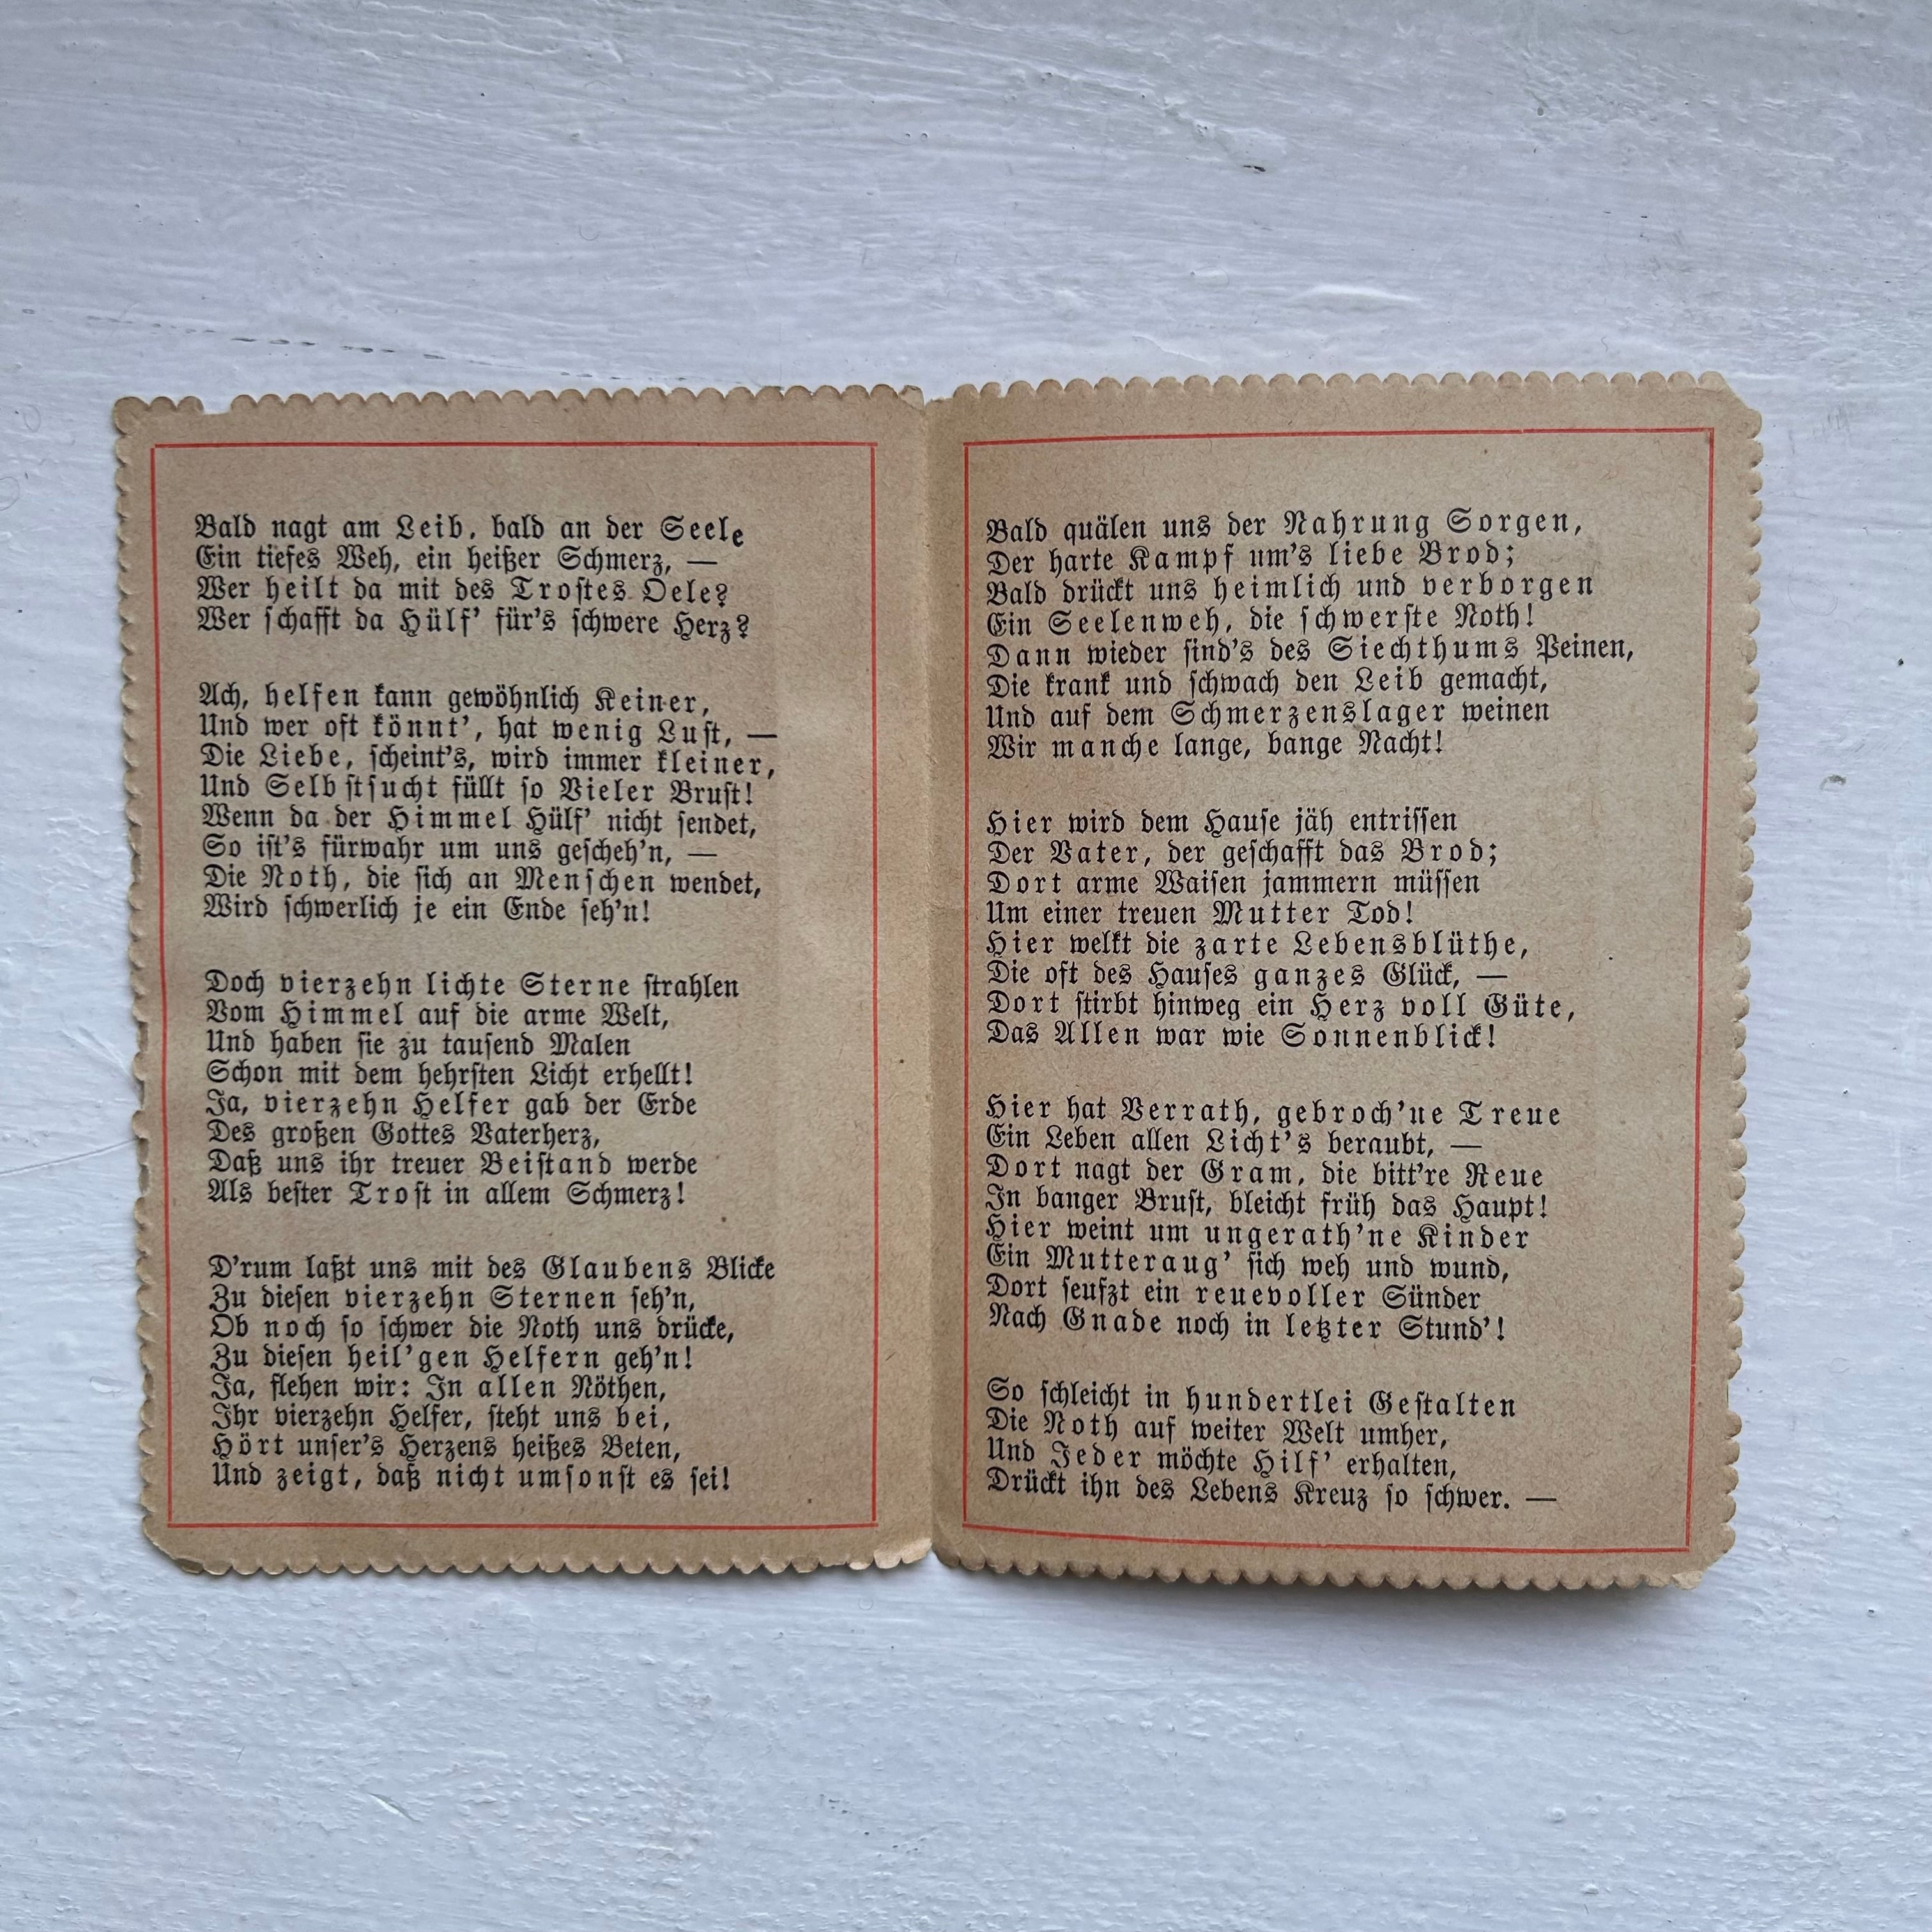 Bald nagt am Leib, bald an der Seele
Ein tiefes Weh, ein heißer Schmerz, —
Wer heilt da mit des Trostes Oele?
Wer schafft da Hülf' für's schwere Herz?
Ach, helfen kann gewöhnlich Keiner,
Und wer oft könnt', hat wenig Lust, —
Die Liebe, scheint's, wird immer kleiner,
Und Selbstsucht füllt so Vieler Brust!
Wenn da der Himmel Hülf' nicht sendet,
So ist's fürwahr um uns gescheh'n, —
Die Noth, die sich an Menschen wendet,
Wird schwerlich je ein Ende seh'n!
Doch vierzehn lichte Sterne strahlen
Vom Himmel auf die arme Welt,
Und haben sie zu tausend Malen
Schon mit dem hehrsten Licht erhellt!
Ja, vierzehn Helfer gab der Erde
Des großen Gottes Vaterherz,
Daß uns ihr treuer Beistand werde
Als bester Trost in allem Schmerz!
D'rum laßt uns mit des Glaubens Blicke
Zu diesen vierzehn Sternen seh'n,
Ob noch so schwer die Noth uns drücke,
Zu diesen heil'gen Helfern geh'n!
Ja, flehen wir: In allen Nöthen,
Ihr vierzehn Helfer, steht uns bei,
Hört unser's Herzens heißes Beten,
Und zeigt, daß nicht umsonst es sei!
Bald quälen uns der Nahrung Sorgen,
Der harte Kampf um's liebe Brod;
Bald drückt uns heimlich und verborgen
Ein Seelenweh, die schwerste Noth!
Dann wieder sind's des Siechthums Peinen,
Die krank und schwach den Leib gemacht,
Und auf dem Schmerzenslager weinen
Wir manche lange, bange Nacht!
Hier wird dem Hause jäh entrissen
Der Vater, der geschafft das Brod;
Dort arme Waisen jammern müssen
Um einer treuen Mutter Tod!
Hier welkt die zarte Lebensblüthe,
Die oft des Hauses ganzes Glück, —
Dort stirbt hinweg ein Herz voll Güte,
Das Allen war wie Sonnenblick!
Hier hat Verrath, gebroch'ne Treue
Ein Leben allen Licht's beraubt, —
Dort nagt der Gram, die bitt're Reue
In banger Brust, bleicht früh das Haupt!
Hier weint um ungerath'ne Kinder
Ein Mutteraug' sich weh und wund,
Dort seufzt ein reuevoller Sünder
Nach Gnade noch in letzter Stund'!
So schleicht in hundertlei Gestalten
Die Noth auf weiter Welt umher,
Und Jeder möchte Hilf' erhalten,
Drückt ihn des Lebens Kreuz so schwer. —